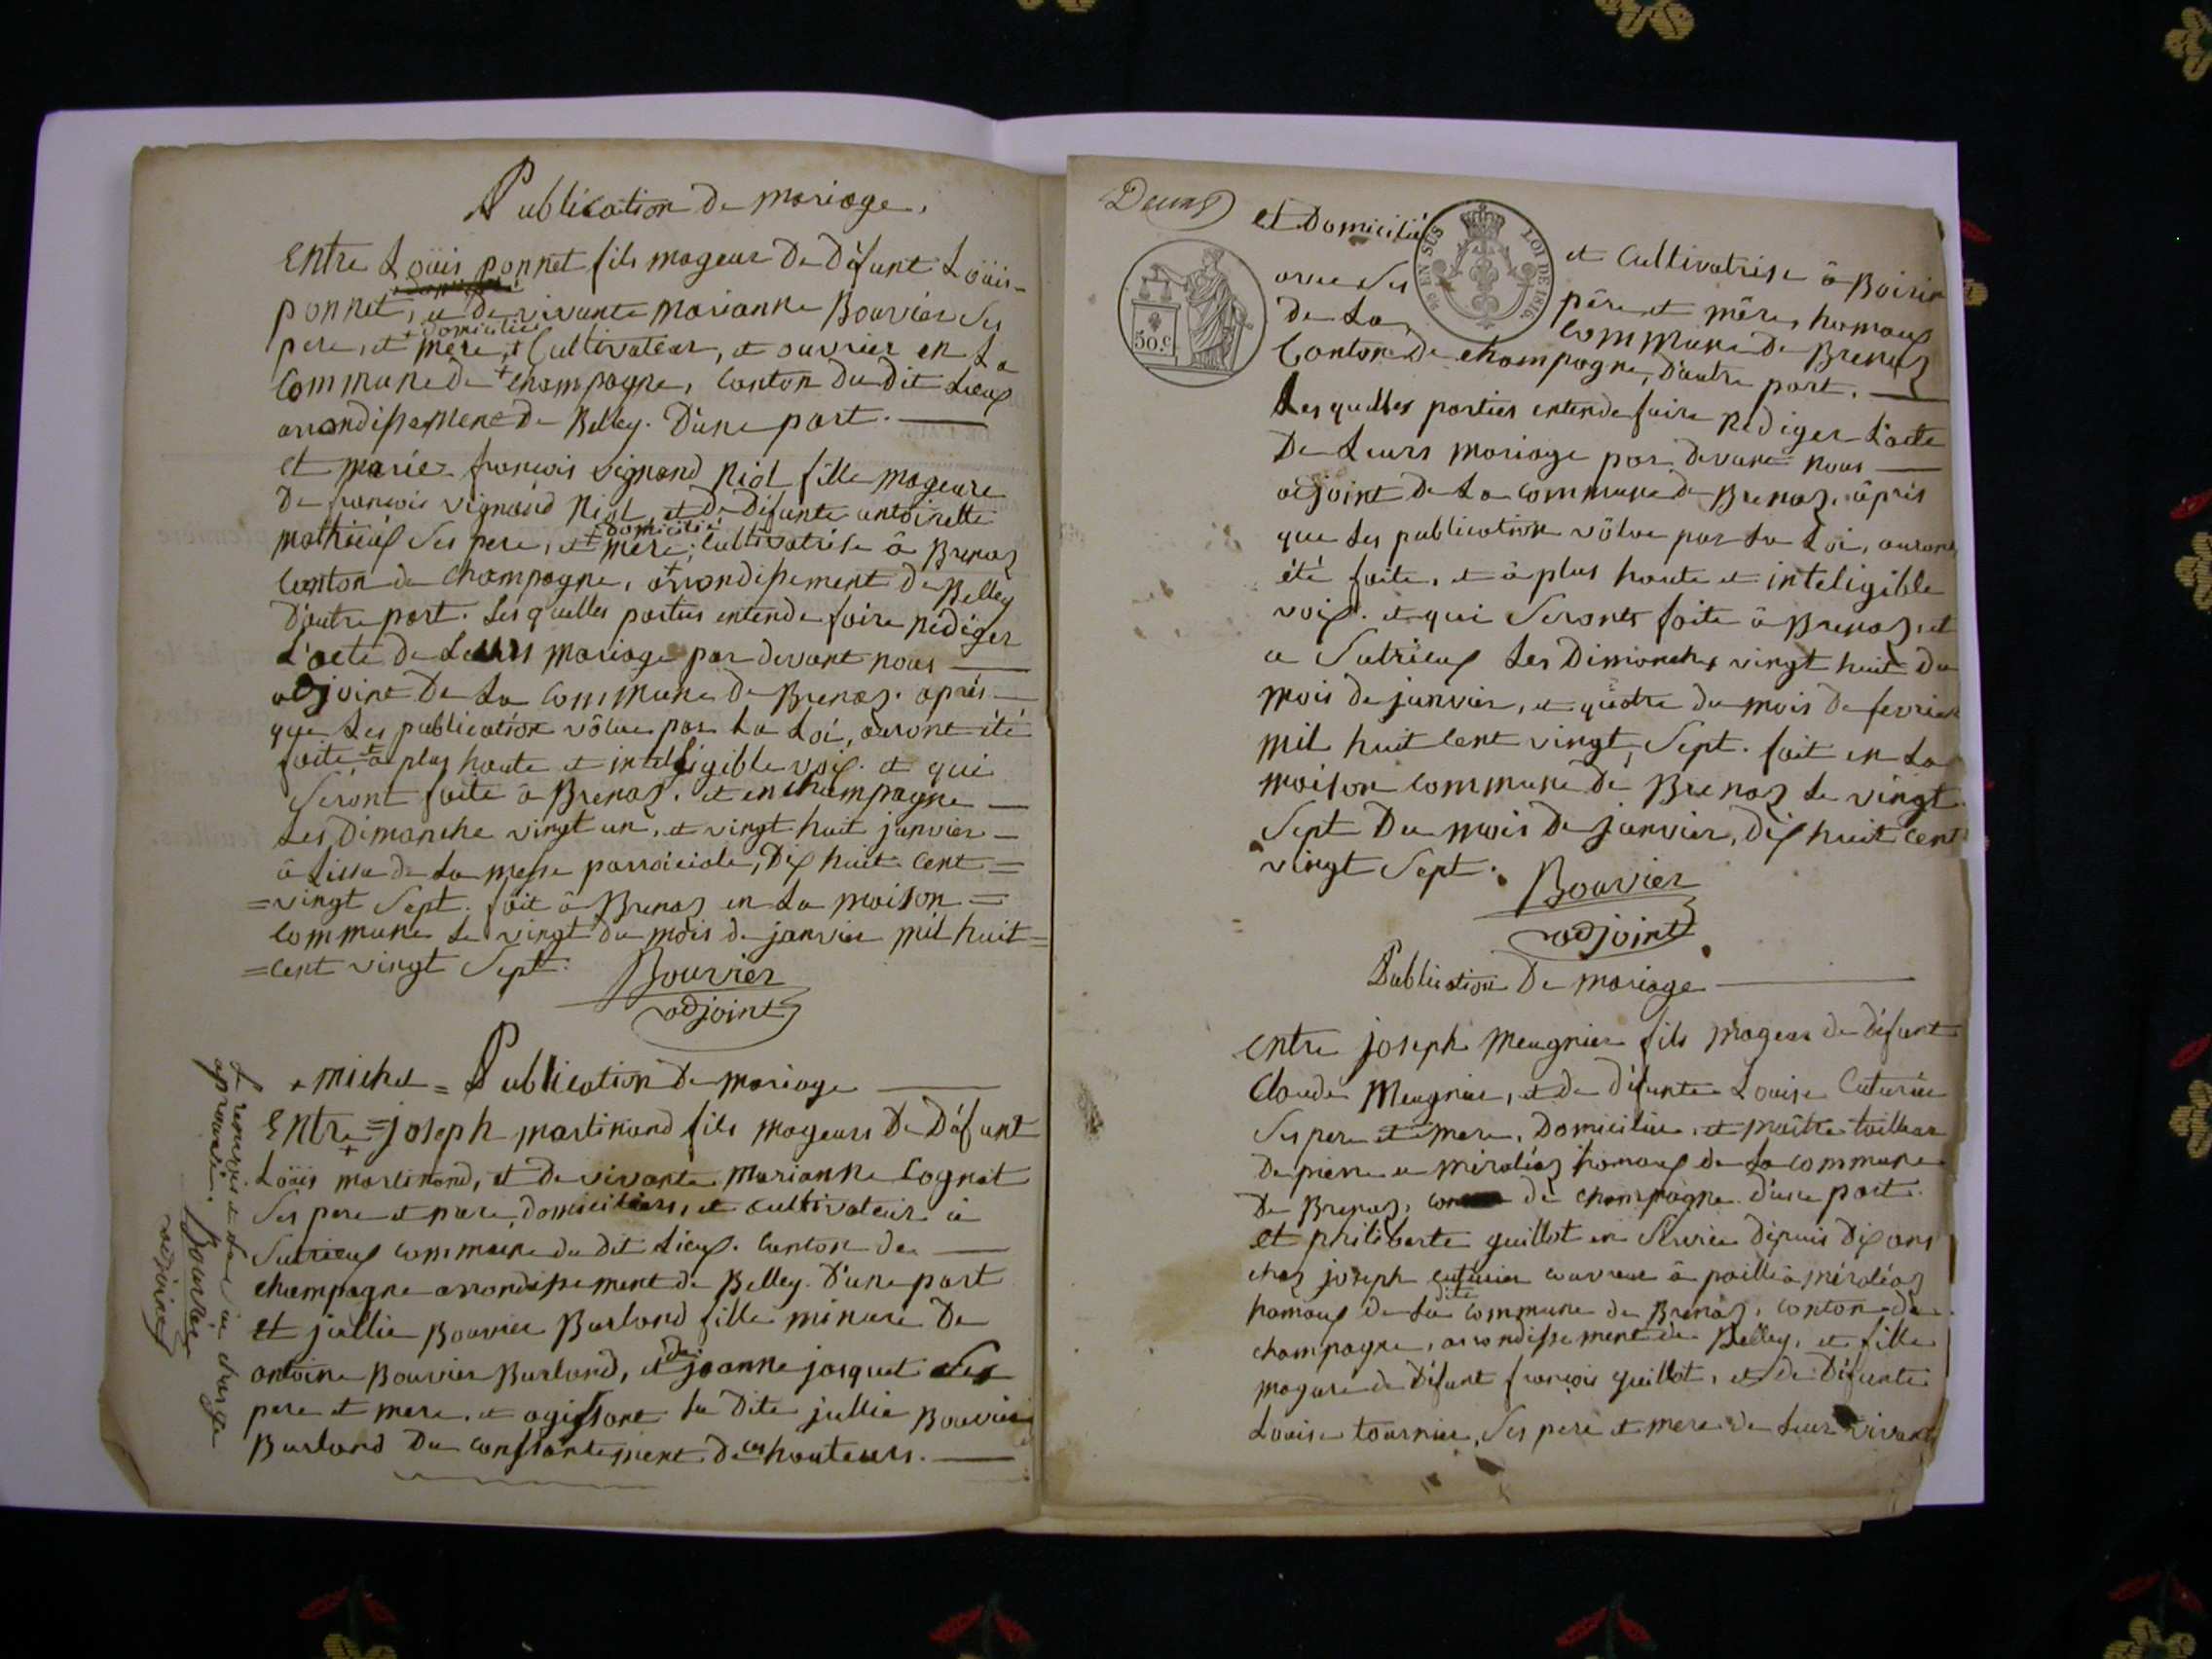 Publication de mariage.
Entre Loüis ponnet fils mageur de défunt Loüis
ponnet, et de vivante marianne Bouvier Ses
+ domiciliés
pere, et mere, + Cultivateur, et ouvrier en La
Commune de champagne, canton du dit Lieux
arrondissement de Belley. D'une part.
et marie francois vignand Niol fille mageure
De francois vignand Niol, et De défunte antoinette
+ domicilié
mathieux Ses pere, et mere, cultivatrise à Brenaz
Canton de Champagne, arrondissement de Belley
D'autre part. Lesquelles parties entende faire rédiger
L'acte de Leurs mariage par devant nous
adjoint De La Commune de Brenaz. après
que Les publication vôlue par La Loi, auront été
faite à plus haute et intelligible voix. et qui
Seront faite à Brenaz. et en champagne
Les Dimanche vingt un, et vingt huit janvier
à Lissu de La messe parroiciale, Dix huit Cent =
= vingt Sept. fait à Brenaz en La maison =
commune Le vingt du mois de janvier mil huit =
= cent vingt Sept.
Bouvier
adjoint
+ michel = Publication De mariage
Entre = joseph martinand fils mageurs De Défunt
Loüis martinand, et De vivante marianne Cognat
Ses pere et mere, domiciliers, et cultivateur à
Sutrieux commune du dit Lieux. Canton de
champagne arrondissement de Belley. D'une part
et jullie Bouvier Burland fille minure De
antoine Bouvier Burland, et de joanne josquet Ses
pere et mere. et agissant La Dite jullie Bouvier
Burland Du consantement de ces hauteurs.
Le renvois et La Sur charge
aprouvée. Bouvier
adjoint
Deux
et Domicilié et Cultivatrise à Boirin
avec Ses père et mère, hamaux
de La Commune de Brenaz
Canton de champagne, D'autre part.
Lesquelles parties entende faire rédiger L'acte
De Leurs mariage par devant nous
adjoint De La commune de Brenaz, après
que Les publication vôlue par La Loi, auront
été faite, et à plus haute et inteligible
voix. et qui Seronts faite à Brenaz, et
a Sutrieux Les Dimanche vingt huit Du
mois de janvier, et quatre du mois De fevrier
mil huit Cent vingt Sept. fait en La
maison commune de Brenaz Le vingt
Sept Du mois De janvier, dix huit Cent
vingt Sept.
Bouvier
adjoint
50.c
95 EN SUS LOI DE 1816.
Publication De mariage
Entre joseph Meugnier fils mageur de défunt
Claude Meugnier, et de défunte Louise Cuturier
Ses pere et mere, Domicilier, et maître tailleur
De pierre a méraléaz hamaux de La commune
De Brenaz, de champagne. d'une part.
et philiberte guillot en Service dépuis Dix ans
chez joseph cuturier couvreur à paille à méraléaz
dite
hamaux de La Commune de Brenaz, canton de
champagne, arrondissement de Belley, et fille
magure de Défunt françois guillot, et de Défunte
Louise tournier, Ses pere et mere de Leur vivant